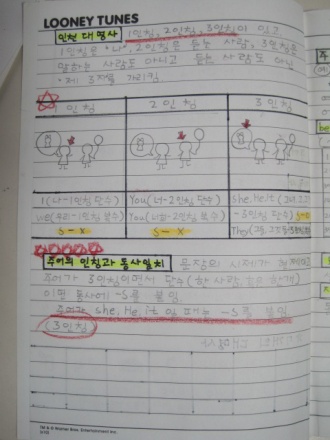 LOONEY TUNES
인칭 대명사 1인칭, 2인칭, 3인칭이 있고
1인칭은 "나" 2인칭은 듣는 사람, 3인칭은
말하는 사람도 아니고 듣는 사람도 아닌
제 3자를 가리킴
1인칭 2인칭 3인칭
I(나-1인칭 단수) You(너-2인칭 단수) She, He, it
we(우리-1인칭 복수) You(너희-2인칭 복수) -3인칭 단수) S-O
S-X S-X They
주어의 인칭과 동사일치 문장의 시제가 현재이고
주어가 3인칭이면서 단수(한 사람, 한 개)
이면 동사에 -S를 붙임.
주어가 she, He, it 일 때는 -S를 붙임
(3인칭)
TM & © Warner Bros. Entertainment Inc.